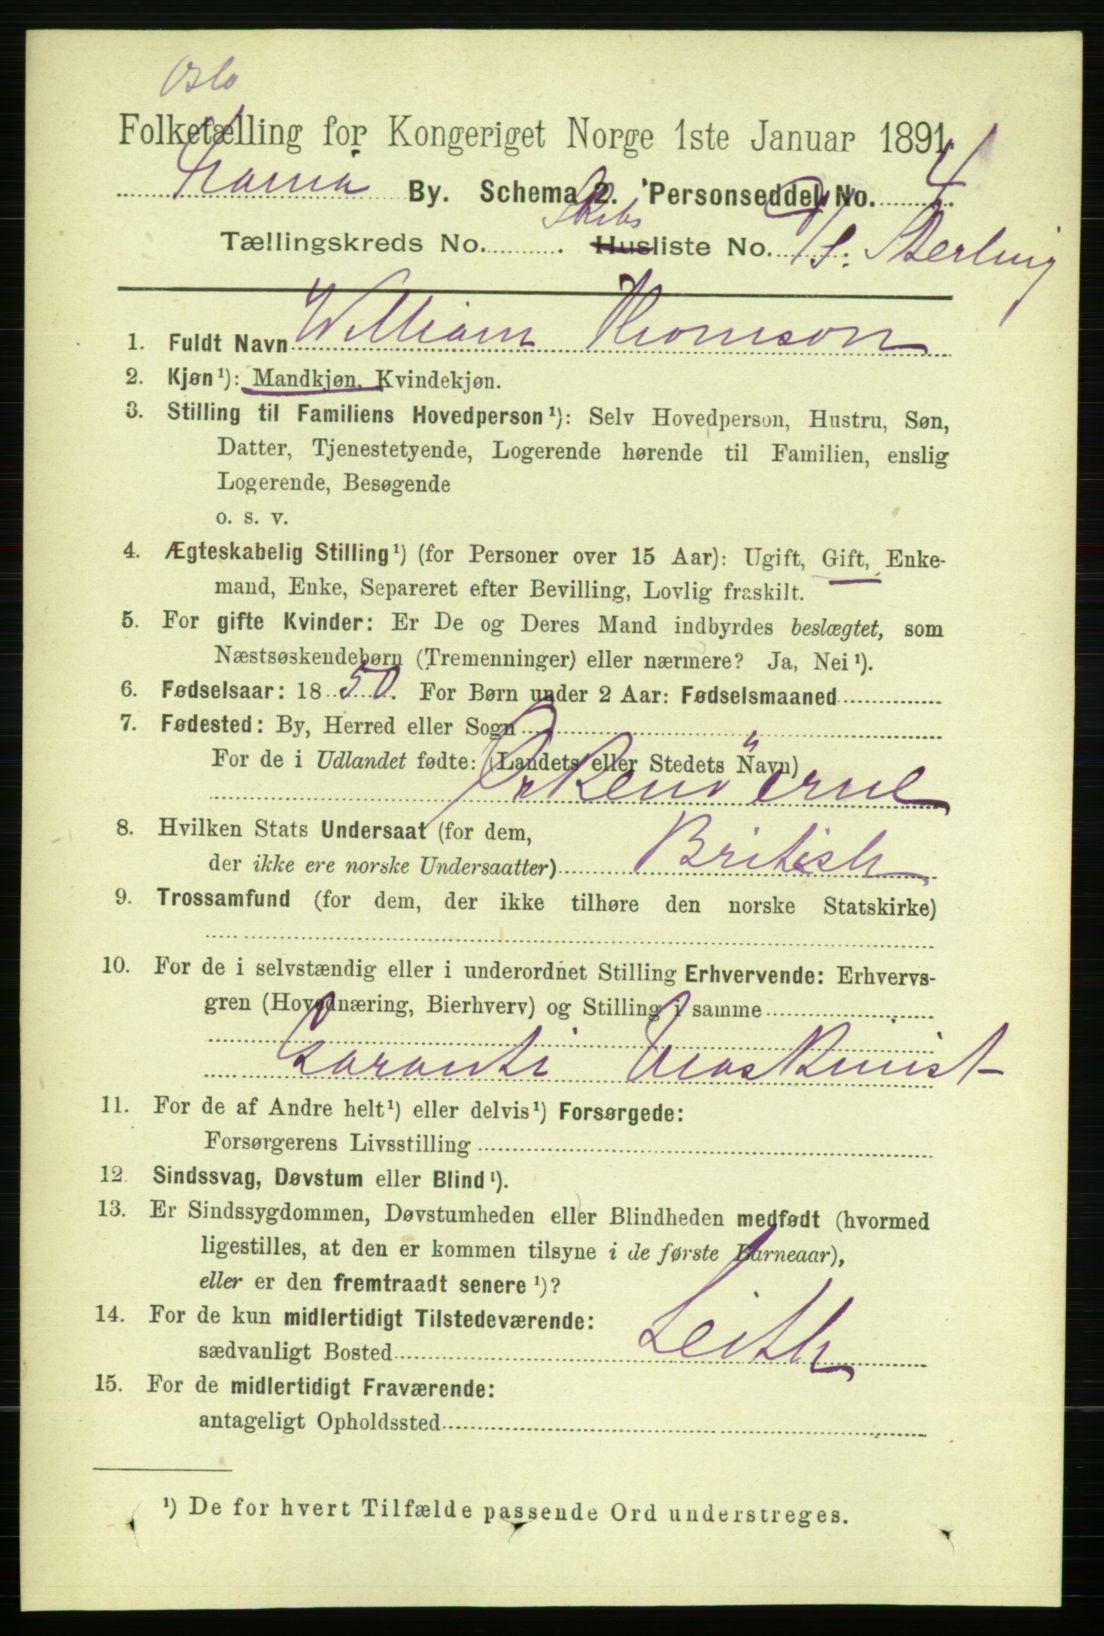 Oslo
Folketælling for Kongeriget Norge 1ste Januar 1891.
By. Schema 2. Personseddel No. 4.
Tællingskreds No. . Skibs Husliste No. D/S. Sterling
1. Fuldt Navn William Thomson
2. Kjøn ¹): Mandkjøn, Kvindekjøn.
3. Stilling til Familiens Hovedperson ¹): Selv Hovedperson, Hustru, Søn,
Datter, Tjenestetyende, Logerende hørende til Familien, enslig
Logerende, Besøgende
o. s. v.
4. Ægteskabelig Stilling ¹) (for Personer over 15 Aar): Ugift, Gift, Enke-
mand, Enke, Separeret efter Bevilling, Lovlig fraskilt.
5. For gifte Kvinder: Er De og Deres Mand indbyrdes beslægtet, som
Næstsøskendebørn (Tremenninger) eller nærmere? Ja, Nei ¹).
6. Fødselsaar: 1850. For Børn under 2 Aar: Fødselsmaaned
7. Fødested: By, Herred eller Sogn
For de i Udlandet fødte: (Landets eller Stedets Navn)
Orkenöerne
8. Hvilken Stats Undersaat (for dem,
der ikke ere norske Undersaatter) British
9. Trossamfund (for dem, der ikke tilhøre den norske Statskirke)
10. For de i selvstændig eller i underordnet Stilling Erhvervende: Erhvervs-
gren (Hovednæring, Bierhverv) og Stilling i samme
Garanti Maskinist
11. For de af Andre helt ¹) eller delvis ¹) Forsørgede:
Forsørgerens Livsstilling
12. Sindssvag, Døvstum eller Blind ¹).
13. Er Sindssygdommen, Døvstumheden eller Blindheden medfødt (hvormed
ligestilles, at den er kommen tilsyne i de første Barneaar),
eller er den fremtraadt senere ¹)?
14. For de kun midlertidigt Tilstedeværende:
sædvanligt Bosted Leith
15. For de midlertidigt Fraværende:
antageligt Opholdssted
¹) De for hvert Tilfælde passende Ord understreges.